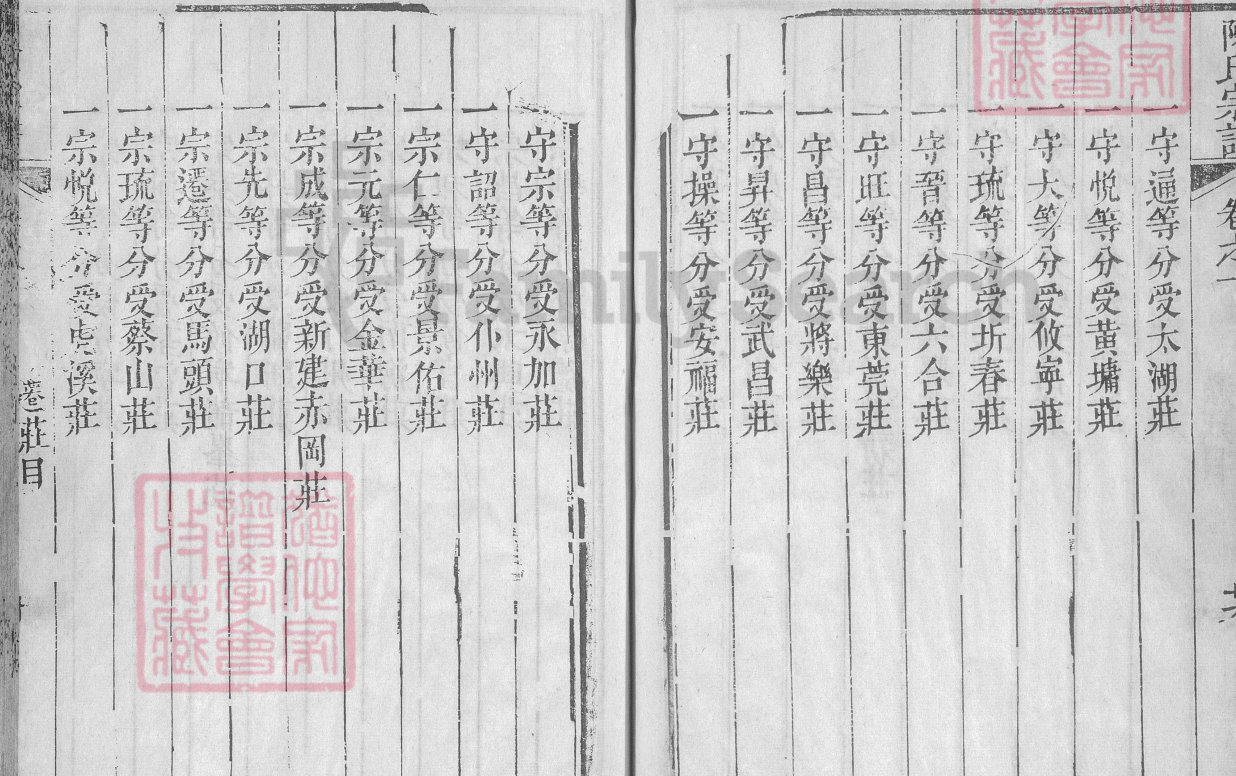 陳氏宗譜
卷之一
一守通等分受太湖莊
一守悅等分受黃墉莊
一守大等分受攸寧莊
一守琉等分受圻春莊
一守晋等分受六合莊
一守旺等分受東莞莊
一守昌等分受將樂莊
一守昇等分受武昌莊
一守操等分受安福莊
一守宗等分受永加莊
一守詔等分受仆州莊
一宗仁等分受景佑莊
一宗元等分受金華莊
一宗成等分受新建赤岡莊
一宗先等分受湖口莊
一宗遷等分受馬頭莊
一宗琉等分受蔡山莊
一宗悅等分受虎溪莊
莊目
FamilySearch